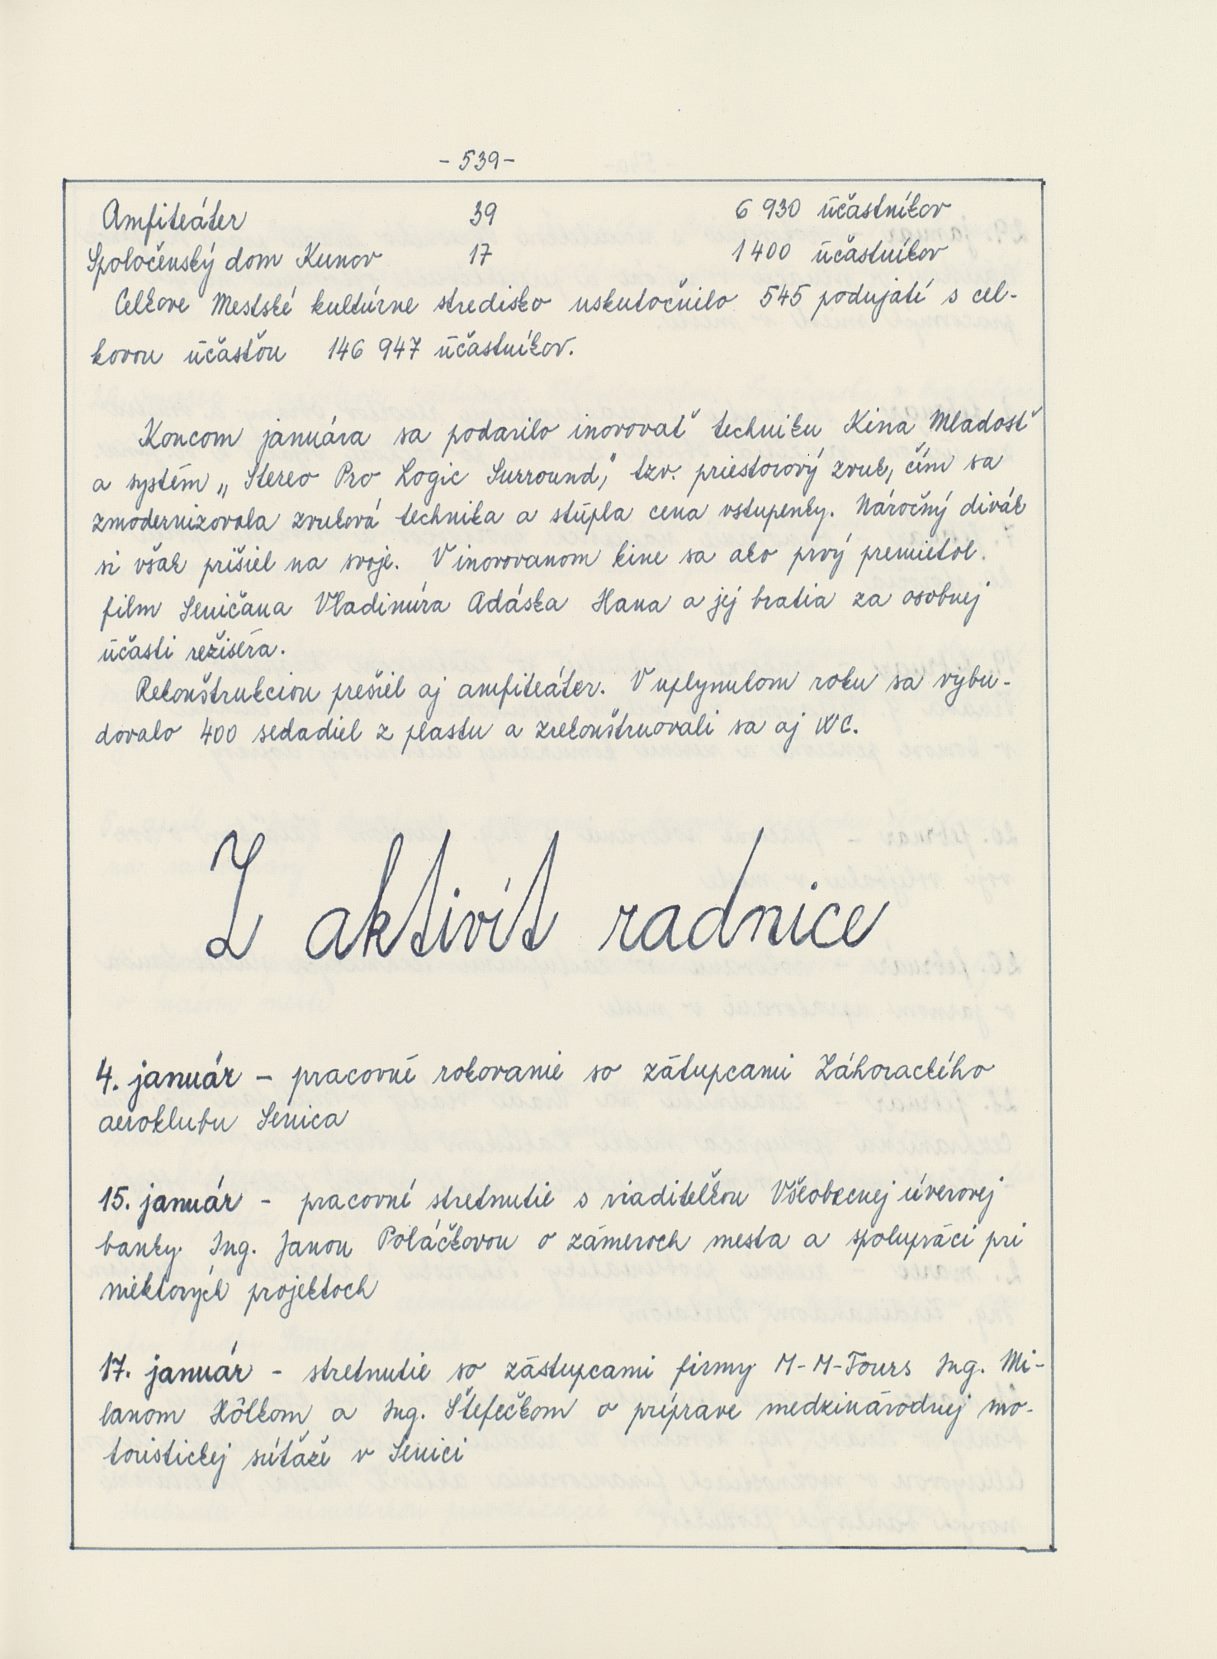 - 539 -
Amfiteáter 39 6 930 účastníkov
Spoločenský dom Kunov 17 1 400 účastníkov
Celkove Mestské kultúrne stredisko uskutočnilo 545 podujatí s cel-
kovou účasťou 146 947 účastníkov.
Koncom januára sa podarilo inovovať techniku Kina Mladosť
a systém „Stereo Pro Logic Surround," tzv. priestorový zvuk, čím sa
zmodernizovala zvuková technika a stúpla cena vstupenky. Náročný divák
si však prišiel na svoje. V inovovanom kine sa ako prvý premietol
film Seničana Vladimíra Adáska Hana a jej bratia za osobnej
účasti režiséra.
Rekonštrukciou prešiel aj amfiteáter. V uplynulom roku sa vybu-
dovalo 400 sedadiel z plastu a zrekonštruovali sa aj WC.
Z aktivít radnice
4. január - pracovné rokovanie so zástupcami Záhoráckého
aeroklubu Senica
15. január - pracovné stretnutie s riaditeľkou Všeobecnej úverovej
banky Ing. Janou Poláčkovou o zámeroch mesta a spolupráci pri
niektorých projektoch
17. január - stretnutie so zástupcami firmy M-M-Tours Ing. Mi-
lanom Hôlkom a Ing. Štefečkom o príprave medzinárodnej mo-
toristickej súťaže v Senici